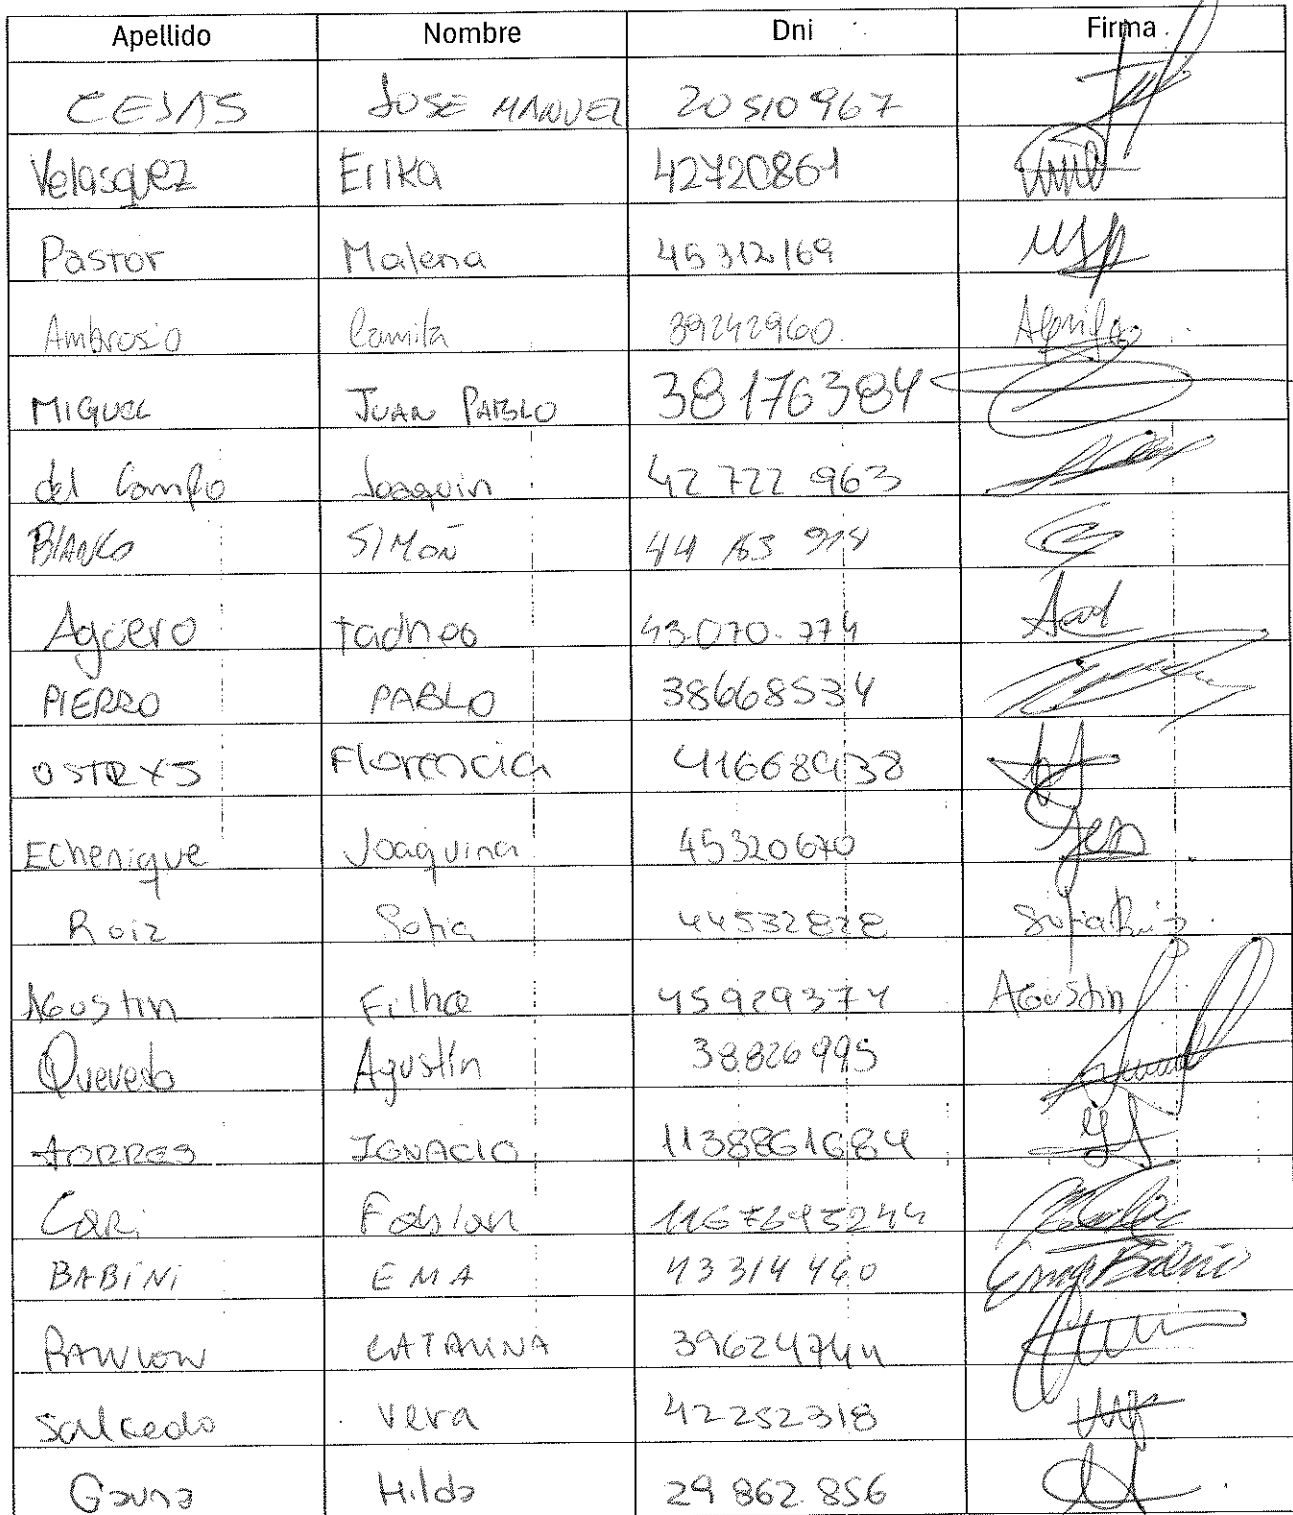 Apellido Nombre Dni Firma
CEJAS JOSE MANUEL 20510967
Velasquez Erika 42720861
Pastor Malena 45312169
Ambrosio Camila 39242960
MIGUEL JUAN PABLO 38176384
del Campo Joaquin 42 722 963
BlANCO SIMON
Agüero Tadheo 43.070.774
PIERRO PABLO 38668534
Florencia 41668938
Echenique Joaquina 45320670
Ruiz Sofia 44532828 Sofia Ruiz
Agustin 45929374 Agustin
Quevedo Agustín 38826995
TORRES IGNACIO 1138861684
Cari Fabian
BABINI EMA 43314460 Ema Babini
CATALINA 39624744
Salcedo Vera 42252318
Gauna Hilda 29.862.856